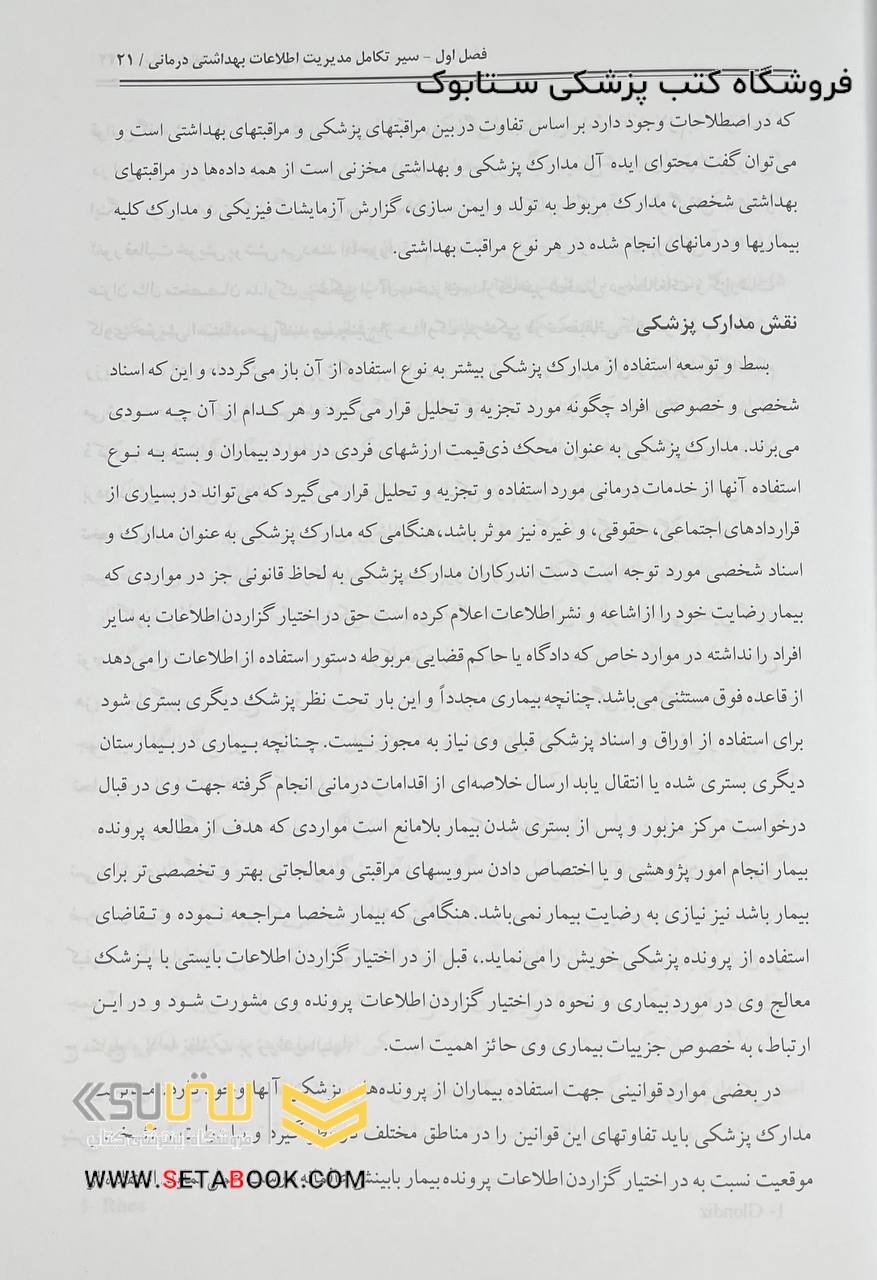 فصل اول - سیر تکامل مدیریت اطلاعات بهداشتی درمانی / ۲۱
فروشگاه کتب پزشکی ستابوک
که در اصطلاحات وجود دارد بر اساس تفاوت در بین مراقبتهای پزشکی و مراقبتهای بهداشتی است و
می‌توان گفت محتوای ایده آل مدارک پزشکی و بهداشتی مخزنی است از همه داده‌ها در مراقبتهای
بهداشتی شخصی، مدارک مربوط به تولد و ایمن سازی، گزارش آزمایشات فیزیکی و مدارک کلیه
بیماریها و درمانهای انجام شده در هر نوع مراقبت بهداشتی.
نقش مدارک پزشکی
بسط و توسعه استفاده از مدارک پزشکی بیشتر به نوع استفاده از آن باز می‌گردد، و این که اسناد
شخصی و خصوصی افراد چگونه مورد تجزیه و تحلیل قرار می‌گیرد و هر کدام از آن چه سودی
می‌برند. مدارک پزشکی به عنوان محک ذی‌قیمت ارزشهای فردی در مورد بیماران و بسته به نوع
استفاده آنها از خدمات درمانی مورد استفاده و تجزیه و تحلیل قرار می‌گیرد که می‌تواند در بسیاری از
قراردادهای اجتماعی، حقوقی، و غیره نیز موثر باشد،هنگامی که مدارک پزشکی به عنوان مدارک و
اسناد شخصی مورد توجه است دست اندرکاران مدارک پزشکی به لحاظ قانونی جز در مواردی که
بیمار رضایت خود را از اشاعه و نشر اطلاعات اعلام کرده است حق در اختیار گزاردن اطلاعات به سایر
افراد را نداشته در موارد خاص که دادگاه یا حاکم قضایی مربوطه دستور استفاده از اطلاعات را می‌دهد
از قاعده فوق مستثنی می‌باشد. چنانچه بیماری مجدداً و این بار تحت نظر پزشک دیگری بستری شود
برای استفاده از اوراق و اسناد پزشکی قبلی وی نیاز به مجوز نیست. چنانچه بیماری در بیمارستان
دیگری بستری شده یا انتقال یابد ارسال خلاصه‌ای از اقدامات درمانی انجام گرفته جهت وی در قبال
درخواست مرکز مزبور و پس از بستری شدن بیمار بلامانع است مواردی که هدف از مطالعه پرونده
بیمار انجام امور پژوهشی و یا اختصاص دادن سرویسهای مراقبتی ومعالجاتی بهتر و تخصصی‌تر برای
بیمار باشد نیز نیازی به رضایت بیمار نمی‌باشد. هنگامی که بیمار شخصا مراجعه نموده و تقاضای
استفاده از پرونده پزشکی خویش را می‌نماید.، قبل از در اختیار گزاردن اطلاعات بایستی با پزشک
معالج وی در مورد بیماری و نحوه در اختیار گزاردن اطلاعات پرونده وی مشورت شود و در این
ارتباط، به خصوص جزییات بیماری وی حائز اهمیت است.
در بعضی موارد قوانینی جهت استفاده بیماران از پرونده‌های پزشکی آنها وجود ندارد. مدیریت
مدارک پزشکی باید تفاوتهای این قوانین را در مناطق مختلف در نظر گیرد و
موقعیت نسبت به در اختیار گزاردن اطلاعات پرونده بیمار با بینش
ستابوک
فروشگاه اینترنتی کتاب
WWW.SETABOOK.COM